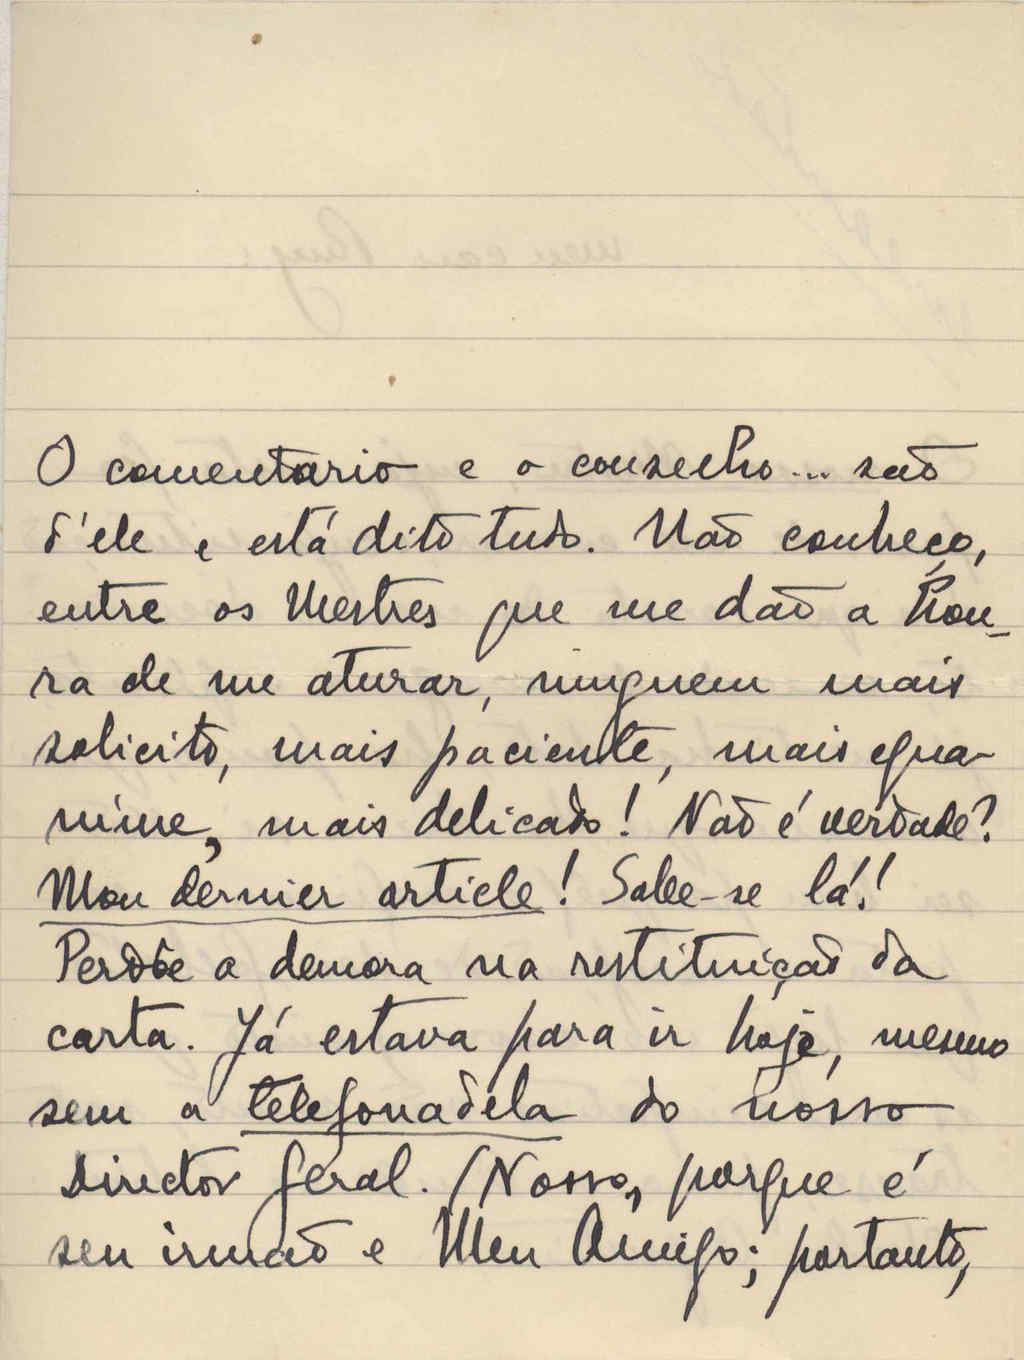 O comentario e o conselho... são
d'ele e está dito tudo. Não conheço,
entre os Mestres que me dão a hon-
ra de me aturar, ninguem mais
solicito, mais paciente, mais equa-
nime, mais delicado! Não é verdade?
Mon dernier article! Sabe-se lá!
Perdôe a demora na restituição da
carta. Já estava para ir hoje, mesmo
sem a telefonadela do nosso
Director Geral. (Nosso, porque é
seu irmão e Meu Amigo; portanto,